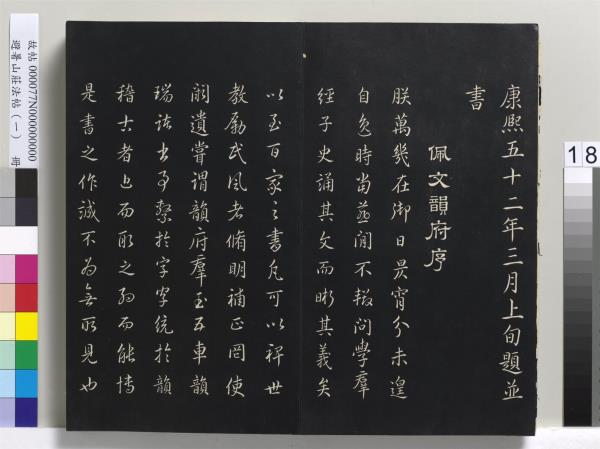 康熙五十二年三月上旬題並
書
佩文韻府序
朕萬幾在御日昃宵分未遑
自逸時當燕閒不輟問學羣
經子史誦其文而晰其義矣
以至百家之書凡可以裨世
教勵民風者脩明補正罔使
闕遺嘗謂韻府羣玉五車韻
瑞諸書事繫於字字統於韻
稽古者近而取之約而能博
是書之作誠不為無所見也
故帖 000077N000000000
避暑山莊法帖（一） 冊
18